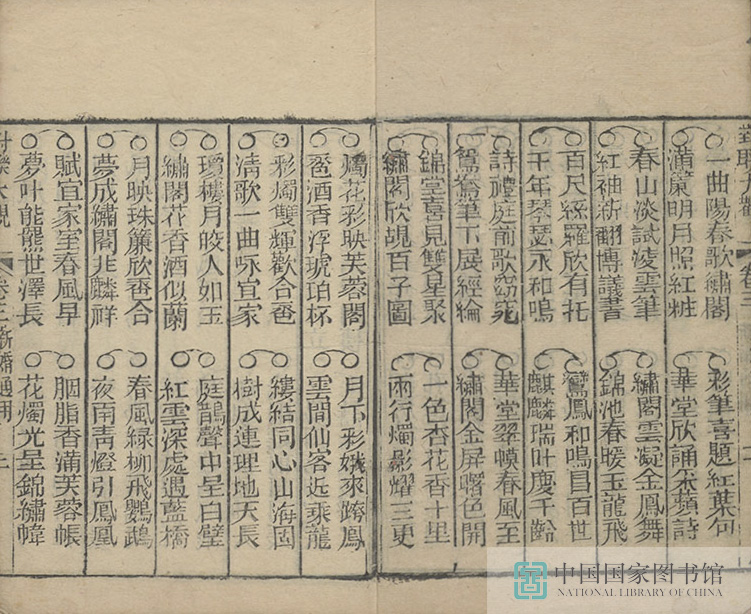 一曲陽春歌繡閣
滿簾明月照紅粧
彩筆喜題紅葉句
華堂欣誦采蘋詩
春山淡試凌雲筆
紅袖新翻博議書
繡閣雲凝金鳳舞
錦池春暖玉龍飛
百尺絲羅欣有托
千年琴瑟永和鳴
鸞鳳和鳴昌百世
麒麟瑞叶慶千齡
詩禮庭前歌窈窕
鴛鴦筆下展經綸
華堂翠幙春風至
繡閣金屏曙色開
錦堂喜見雙星聚
繡閣欣覩百子圖
一色杏花香十里
兩行燭影耀三更
燭花彩映芙蓉閣
巹酒香浮琥珀杯
月下彩娥來跨鳳
雲間仙客近乘龍
彩燭雙輝歡合巹
清歌一曲咏宜家
縷結同心山海固
樹成連理地天長
瓊樓月皎人如玉
繡閣花香酒似蘭
庭鵲聲中呈白璧
紅雲深處遇藍橋
月映珠簾欣巹合
夢成繡閣兆麟祥
春風綠柳飛鸚鵡
夜雨靑燈引鳳凰
賦宜家室春風早
夢叶能羆世澤長
胭脂香滿芙蓉帳
花燭光呈錦繡幃
大觀 卷二 新婚通用
中国国家图书馆
NATIONAL LIBRARY OF CHINA